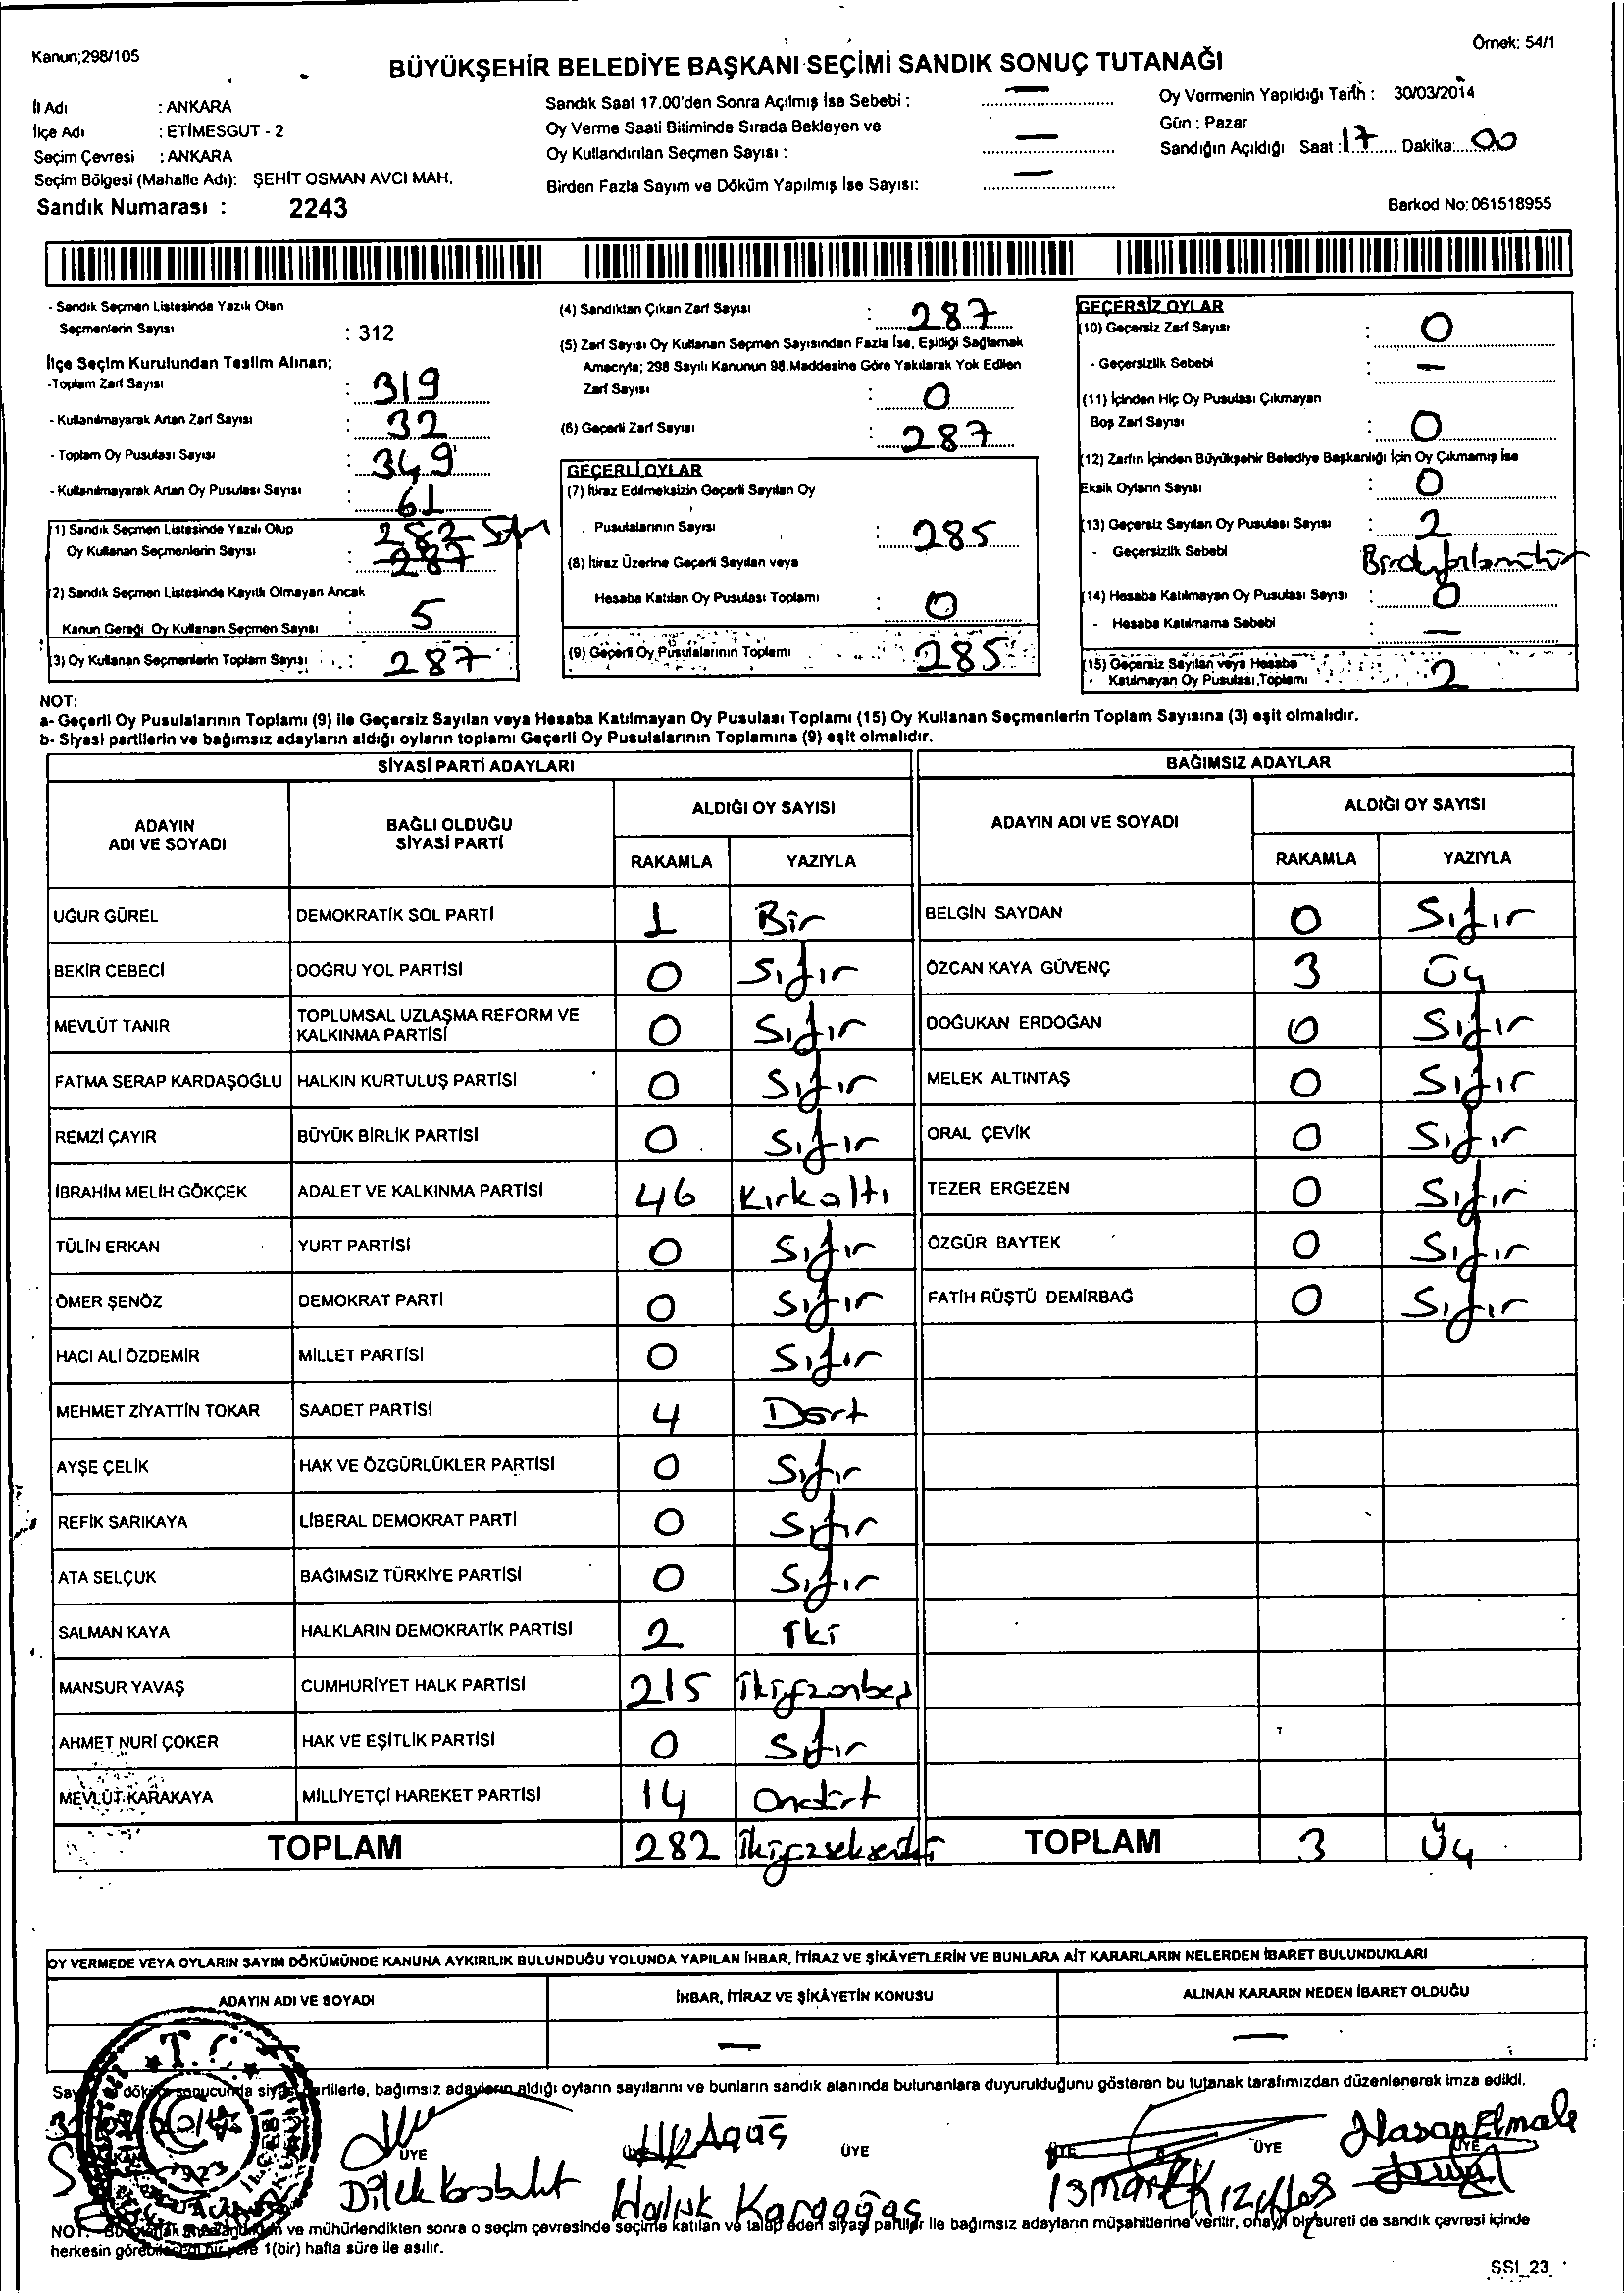 Kanun;298/105
Örnek: 54/1
BÜYÜKŞEHİR BELEDİYE BAŞKANI SEÇİMİ SANDIK SONUÇ TUTANAĞI
İl Adı : ANKARA
İlçe Adı : ETİMESGUT - 2
Seçim Çevresi : ANKARA
Seçim Bölgesi (Mahalle Adı): ŞEHİT OSMAN AVCI MAH.
Sandık Numarası : 2243
Sandık Saat 17.00'den Sonra Açılmış İse Sebebi : —
Oy Verme Saati Bitiminde Sırada Bekleyen ve
Oy Kullandırılan Seçmen Sayısı : —
Birden Fazla Sayım ve Döküm Yapılmış İse Sayısı: —
Oy Vermenin Yapıldığı Tarih : 30/03/2014
Gün : Pazar
Sandığın Açıldığı Saat : 17 Dakika: 00
Barkod No: 061518955
- Sandık Seçmen Listesinde Yazılı Olan
Seçmenlerin Sayısı : 312
İlçe Seçim Kurulundan Teslim Alınan;
-Toplam Zarf Sayısı : 319
- Kullanılmayarak Artan Zarf Sayısı : 32
- Toplam Oy Pusulası Sayısı : 349
- Kullanılmayarak Artan Oy Pusulası Sayısı : 61
(1) Sandık Seçmen Listesinde Yazılı Olup 282
Oy Kullanan Seçmenlerin Sayısı : 287
(2) Sandık Seçmen Listesinde Kayıtlı Olmayan Ancak
Kanun Gereği Oy Kullanan Seçmen Sayısı : 5
(3) Oy Kullanan Seçmenlerin Toplam Sayısı : 287
(4) Sandıktan Çıkan Zarf Sayısı : 287
(5) Zarf Sayısı Oy Kullanan Seçmen Sayısından Fazla İse, Eşitliği Sağlamak
Amacıyla; 298 Sayılı Kanunun 98.Maddesine Göre Yakılarak Yok Edilen
Zarf Sayısı : 0
(6) Geçerli Zarf Sayısı : 287
GEÇERLİ OYLAR
(7) İtiraz Edilmeksizin Geçerli Sayılan Oy
Pusulalarının Sayısı : 285
(8) İtiraz Üzerine Geçerli Sayılan veya
Hesaba Katılan Oy Pusulası Toplamı : 0
(9) Geçerli Oy Pusulalarının Toplamı : 285
GEÇERSİZ OYLAR
(10) Geçersiz Zarf Sayısı : 0
- Geçersizlik Sebebi : —
(11) İçinden Hiç Oy Pusulası Çıkmayan
Boş Zarf Sayısı : 0
(12) Zarfın İçinden Büyükşehir Belediye Başkanlığı İçin Oy Çıkmamış İse
Eksik Oyların Sayısı : 0
(13) Geçersiz Sayılan Oy Pusulası Sayısı : 2
- Geçersizlik Sebebi
(14) Hesaba Katılmayan Oy Pusulası Sayısı : 0
- Hesaba Katılmama Sebebi : —
(15) Geçersiz Sayılan veya Hesaba
Katılmayan Oy Pusulası Toplamı : 2
NOT:
a- Geçerli Oy Pusulalarının Toplamı (9) ile Geçersiz Sayılan veya Hesaba Katılmayan Oy Pusulası Toplamı (15) Oy Kullanan Seçmenlerin Toplam Sayısına (3) eşit olmalıdır.
b- Siyasi partilerin ve bağımsız adayların aldığı oyların toplamı Geçerli Oy Pusulalarının Toplamına (9) eşit olmalıdır.
SİYASİ PARTİ ADAYLARI
BAĞIMSIZ ADAYLAR
ADAYIN ADI VE SOYADI
BAĞLI OLDUĞU SİYASİ PARTİ
ALDIĞI OY SAYISI
RAKAMLA YAZIYLA
ADAYIN ADI VE SOYADI
ALDIĞI OY SAYISI
RAKAMLA YAZIYLA
UĞUR GÜREL DEMOKRATİK SOL PARTİ 1 Bir BELGİN SAYDAN 0 Sıfır
BEKİR CEBECİ DOĞRU YOL PARTİSİ 0 Sıfır ÖZCAN KAYA GÜVENÇ 3 Üç
MEVLÜT TANIR TOPLUMSAL UZLAŞMA REFORM VE KALKINMA PARTİSİ 0 Sıfır DOĞUKAN ERDOĞAN 0 Sıfır
FATMA SERAP KARDAŞOĞLU HALKIN KURTULUŞ PARTİSİ 0 Sıfır MELEK ALTINTAŞ 0 Sıfır
REMZİ ÇAYIR BÜYÜK BİRLİK PARTİSİ 0 Sıfır ORAL ÇEVİK 0 Sıfır
İBRAHİM MELİH GÖKÇEK ADALET VE KALKINMA PARTİSİ 46 Kırkaltı TEZER ERGEZEN 0 Sıfır
TÜLİN ERKAN YURT PARTİSİ 0 Sıfır ÖZGÜR BAYTEK 0 Sıfır
ÖMER ŞENÖZ DEMOKRAT PARTİ 0 Sıfır FATİH RÜŞTÜ DEMİRBAĞ 0 Sıfır
HACI ALİ ÖZDEMİR MİLLET PARTİSİ 0 Sıfır
MEHMET ZİYATTİN TOKAR SAADET PARTİSİ 4 Dört
AYŞE ÇELİK HAK VE ÖZGÜRLÜKLER PARTİSİ 0 Sıfır
REFİK SARIKAYA LİBERAL DEMOKRAT PARTİ 0 Sıfır
ATA SELÇUK BAĞIMSIZ TÜRKİYE PARTİSİ 0 Sıfır
SALMAN KAYA HALKLARIN DEMOKRATİK PARTİSİ 2 İki
MANSUR YAVAŞ CUMHURİYET HALK PARTİSİ 215 İkiyüzonbeş
AHMET NURİ ÇOKER HAK VE EŞİTLİK PARTİSİ 0 Sıfır
MEVLÜT KARAKAYA MİLLİYETÇİ HAREKET PARTİSİ 14 Ondört
TOPLAM 282 İkiyüzsekseniki TOPLAM 3 Üç
OY VERMEDE VEYA OYLARIN SAYIM DÖKÜMÜNDE KANUNA AYKIRILIK BULUNDUĞU YOLUNDA YAPILAN İHBAR, İTİRAZ VE ŞİKÂYETLERİN VE BUNLARA AİT KARARLARIN NELERDEN İBARET BULUNDUKLARI
ADAYIN ADI VE SOYADI İHBAR, İTİRAZ VE ŞİKÂYETİN KONUSU ALINAN KARARIN NEDEN İBARET OLDUĞU
— — —
partilerle, bağımsız adayların aldığı oyların sayılarını ve bunların sandık alanında bulunanlara duyurulduğunu gösteren bu tutanak tarafımızdan düzenlenerek imza edildi.
T.C.
ÜYE ÜYE ÜYE ÜYE ÜYE ÜYE
Hasan Elmalı
Dilek Karabulut Haluk Karaağaç
NOT: ve mühürlendikten sonra o seçim çevresinde seçime katılan ve talep eden siyasi partiler ile bağımsız adayların müşahitlerine verilir, onaylı bir sureti de sandık çevresi içinde
herkesin görebileceği bir yere 1(bir) hafta süre ile asılır.
SSI_23